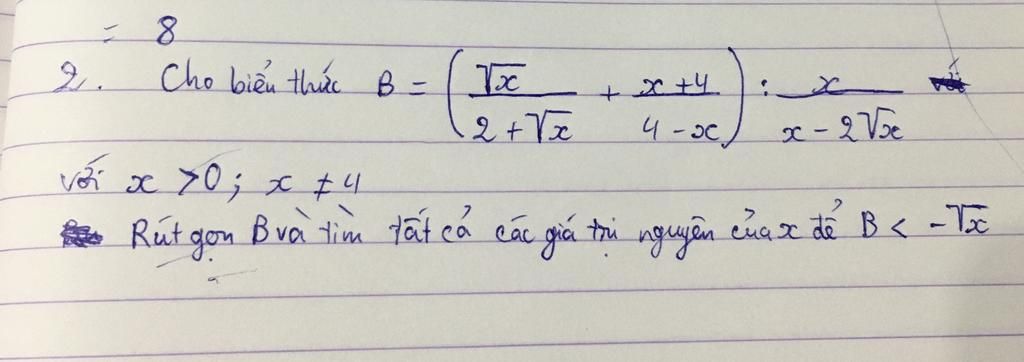 = 8
2. Cho biểu thức B = (√x / (2 + √x) + (x + 4) / (4 - x)) : x / (x - 2√x)
với x > 0; x ≠ 4
Rút gọn B và tìm tất cả các giá trị nguyên của x để B < -√x